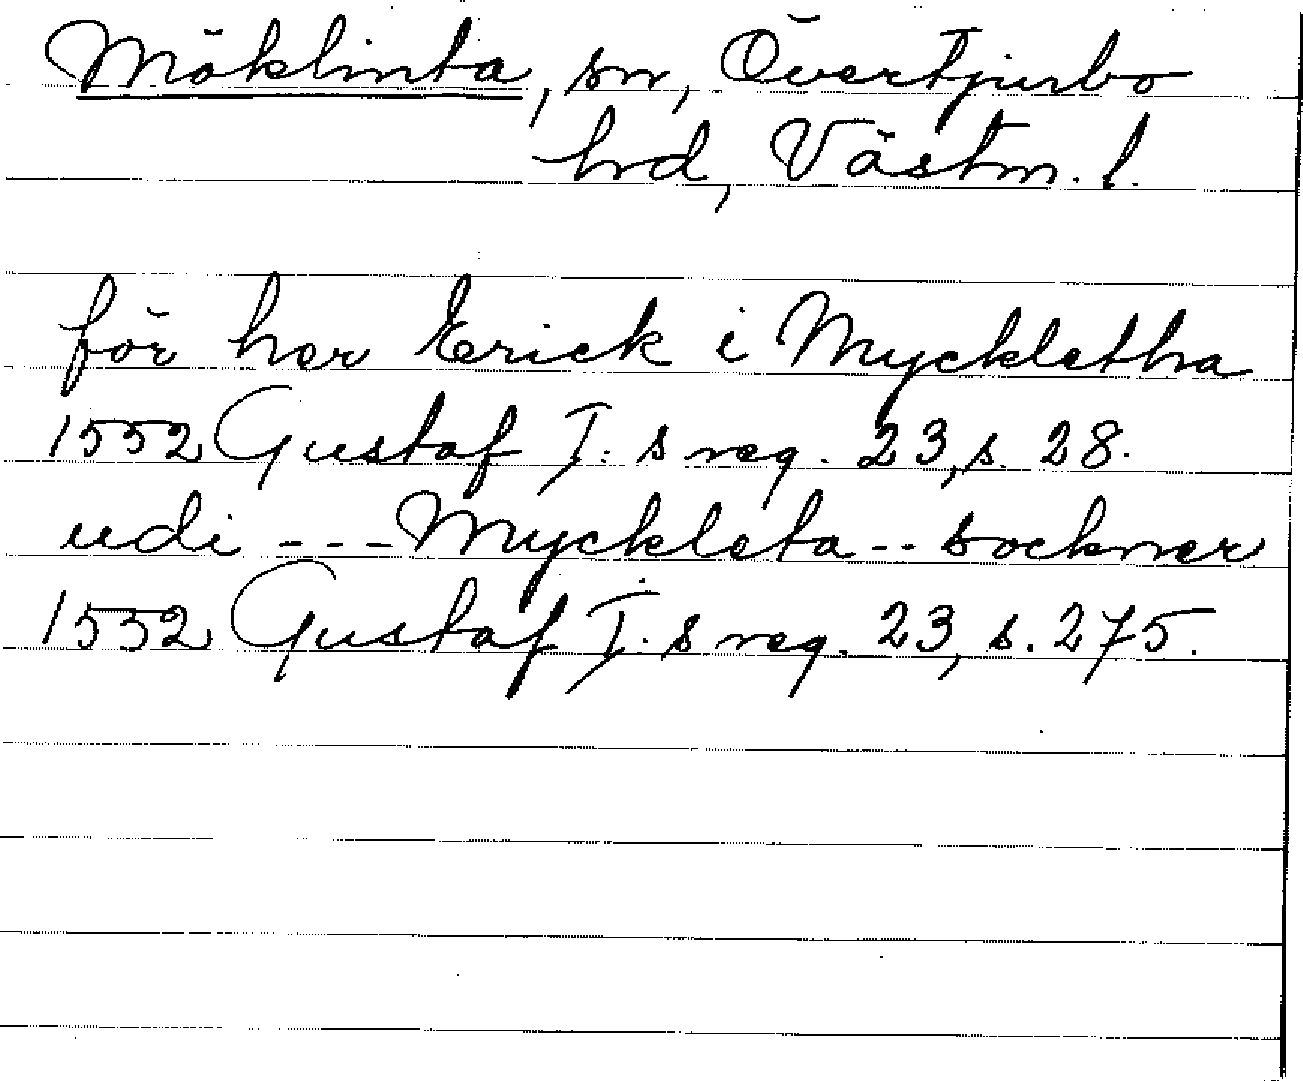 Möklinta, sn, Övertjurbo
hrd, Västm. l.
för her Erick i Myckletha
1552 Gustaf I: s reg. 23, s. 28.
udi --- Myckleta -- sockner
1552 Gustaf I: s reg. 23, s. 275.